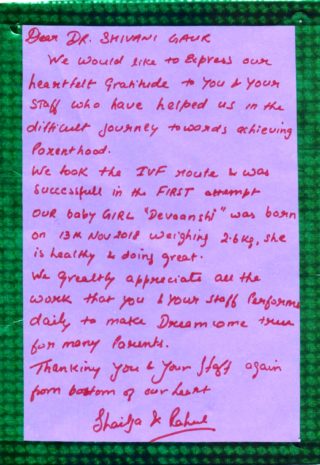 Dear DR. SHIVANI GAUR
We would like to Express our
heartfelt Gratitude to You & Your
Staff who have helped us in the
difficult journey towards achieving
Parenthood.
We took the IVF route & was
Successfull in the FIRST attempt
OUR baby GIRL "Devaanshi" was born
on 13th Nov 2018 weighing 2.6kg, she
is healthy & doing great.
We Grealtly appreciate all the
work that you & your staff Performe
daily to make Dreamcome true
for many Parents.
Thanking You & Your Staff again
from bottom of our heart
Shailja & Rahul